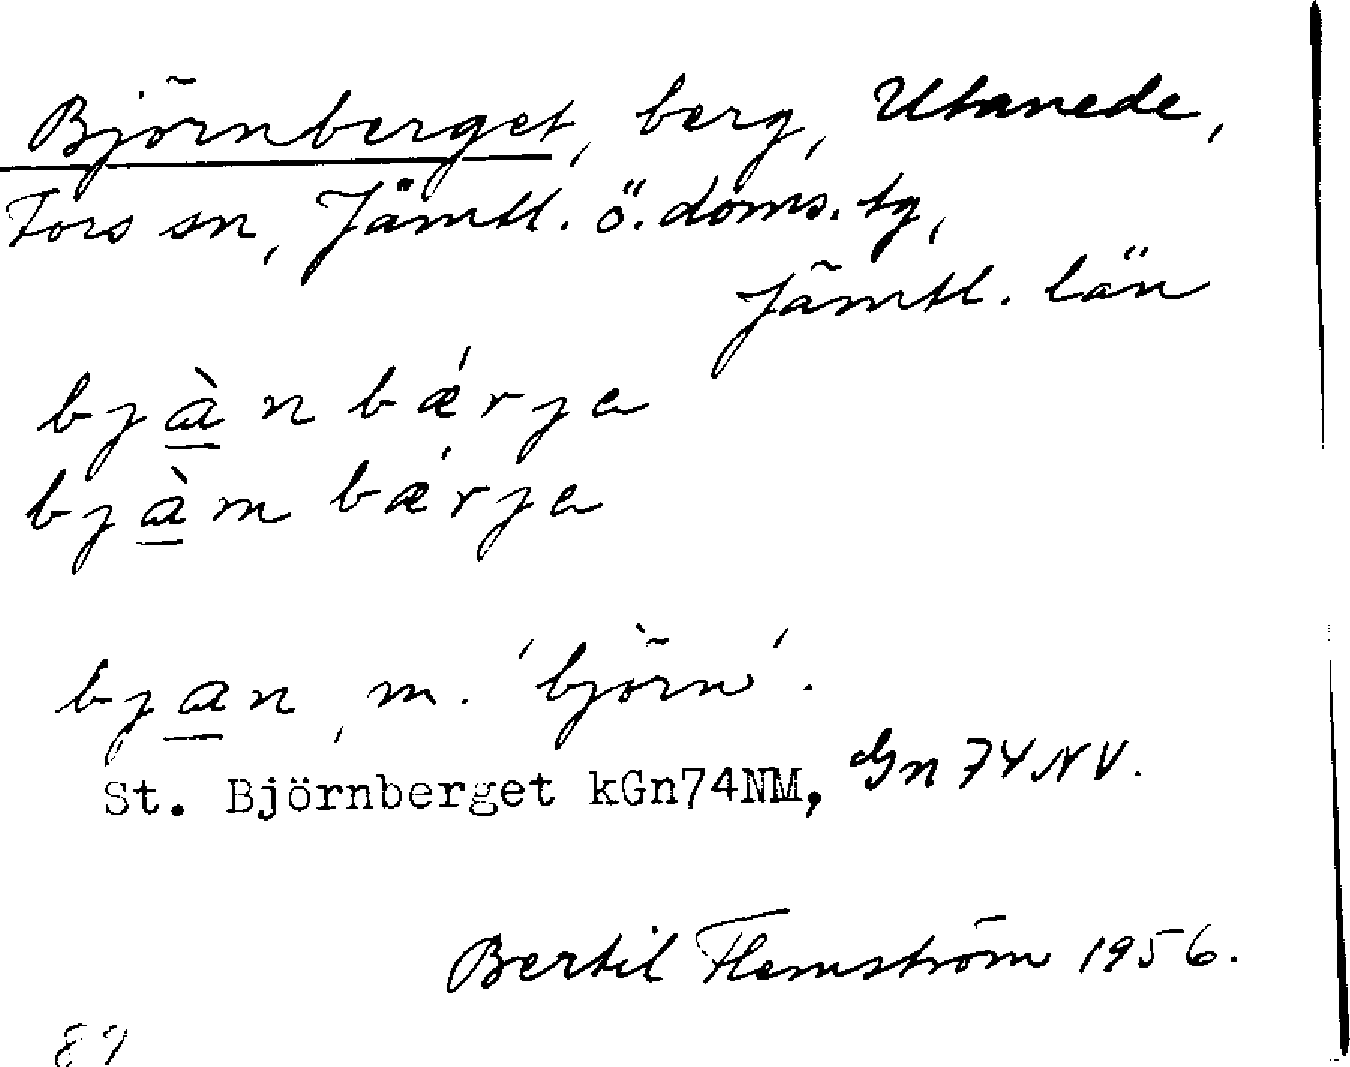 Björnberget, berg, Utanede,
Fors sn, Jämtl. ö. doms. tg,
Jämtl. län
bjàn bǽrja
bjàm bǽrja
bjan, m. 'björn'.
St. Björnberget kGn74NM, Gn 74 NV.
Bertil Flemström 1956.
89